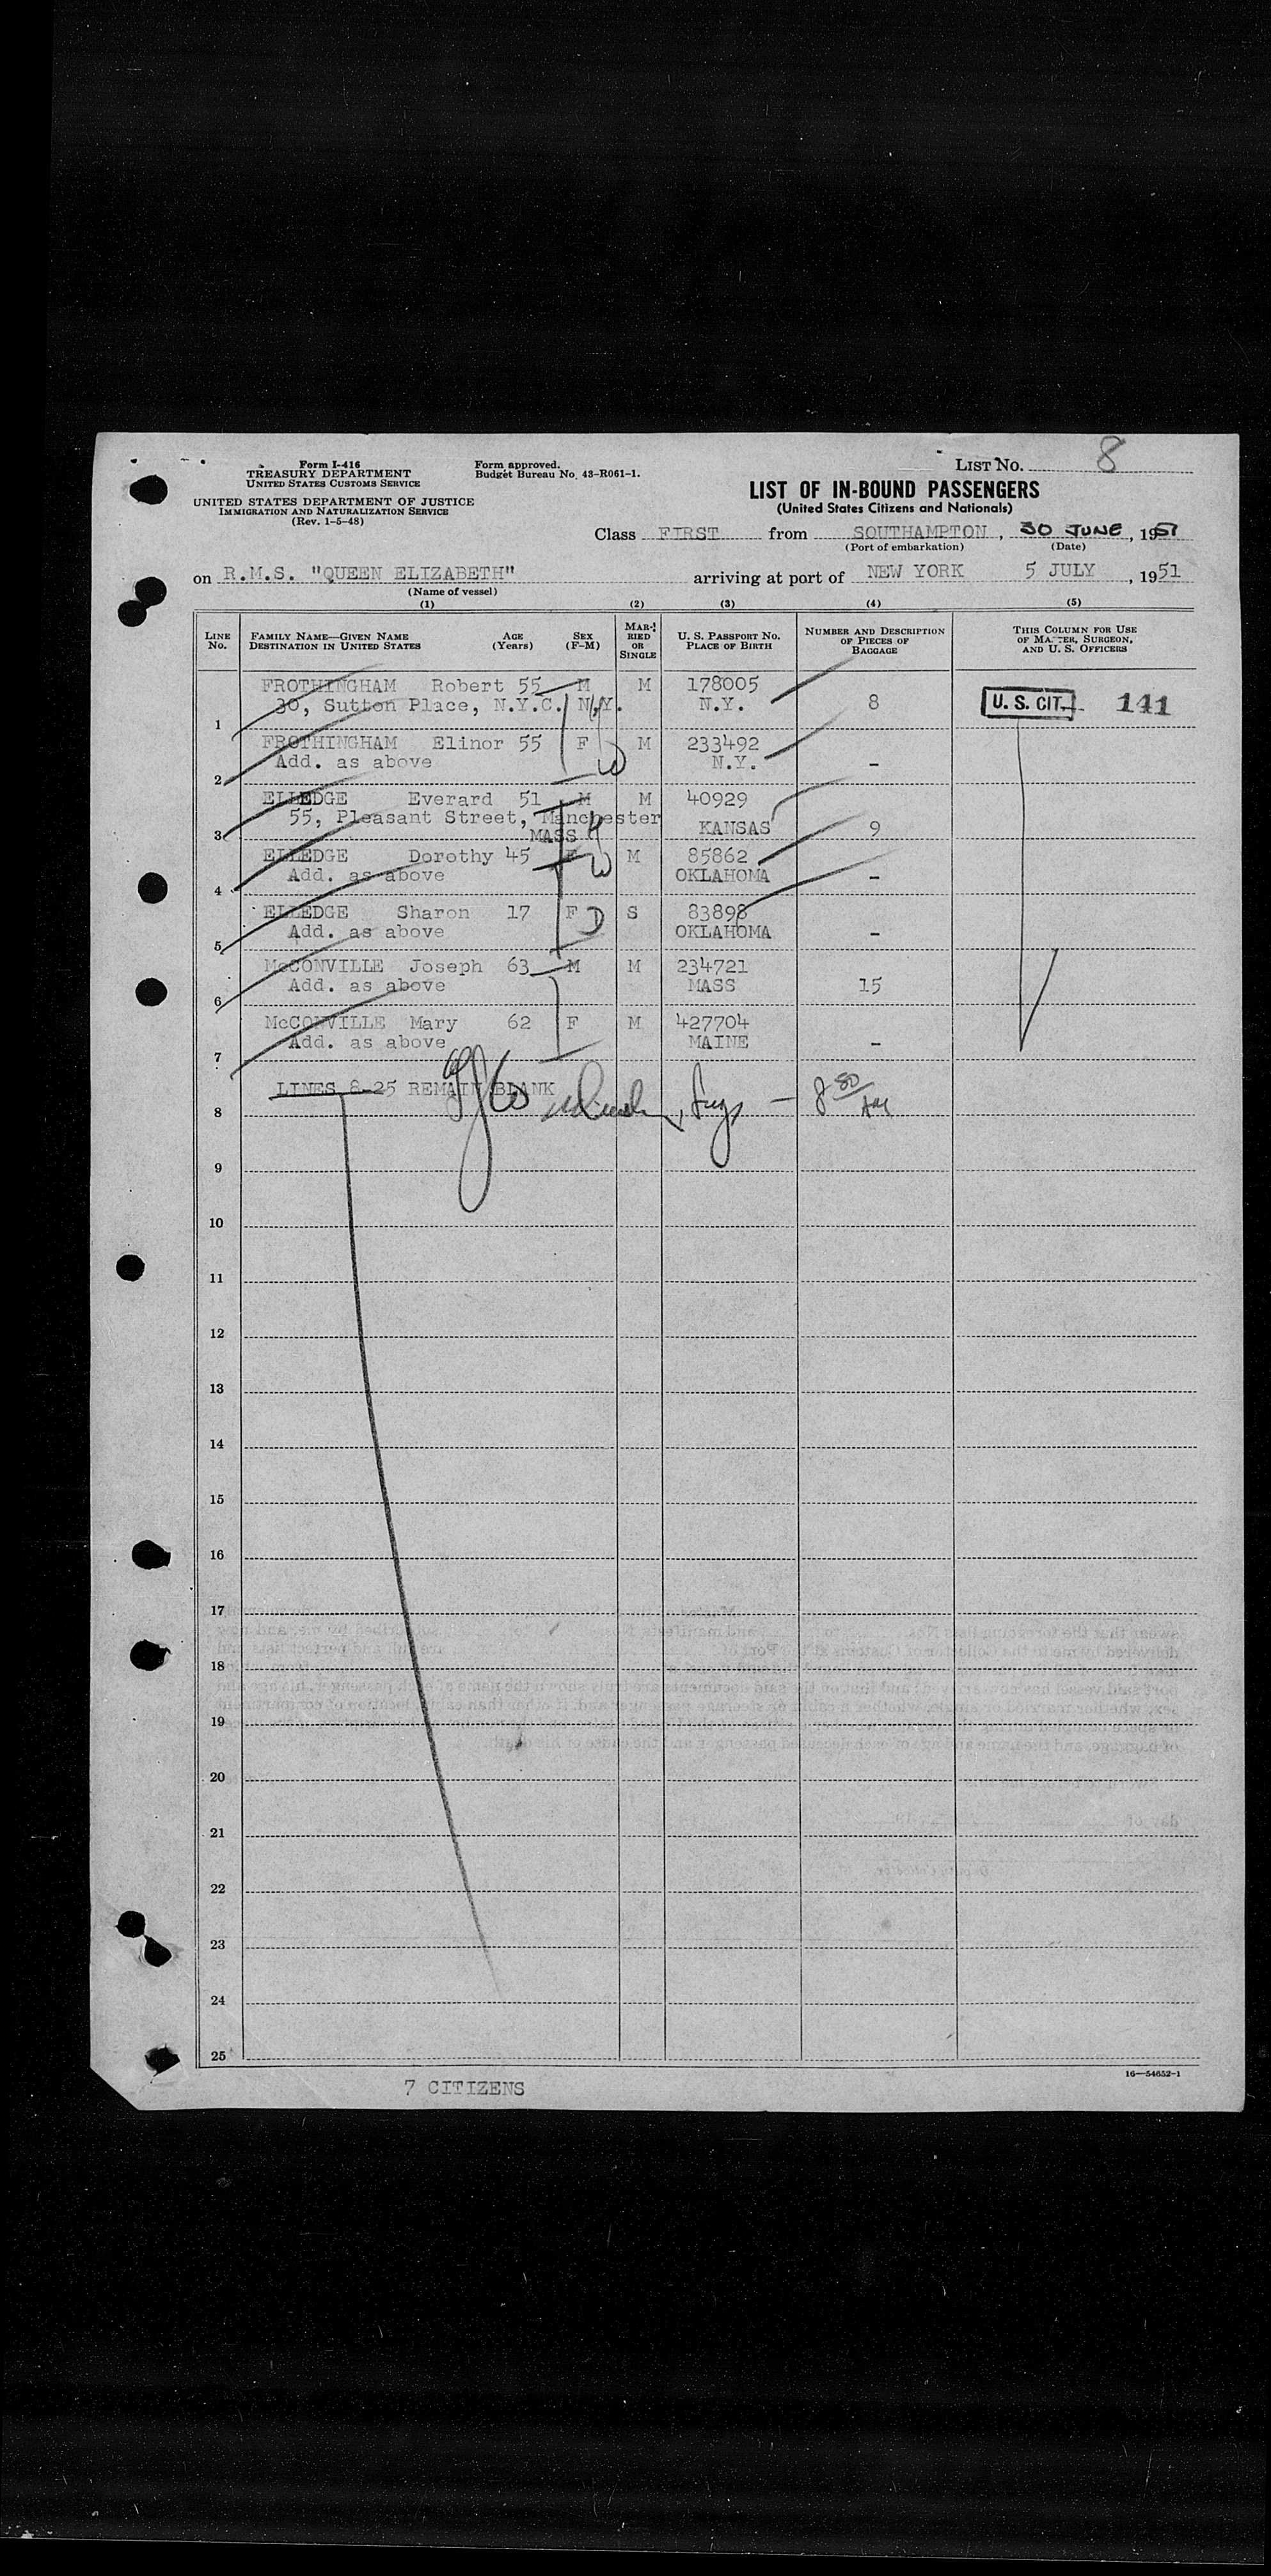 Form I-416
TREASURY DEPARTMENT
UNITED STATES CUSTOMS SERVICE
UNITED STATES DEPARTMENT OF JUSTICE
IMMIGRATION AND NATURALIZATION SERVICE
(Rev. 1-5-48)
Form approved.
Budget Bureau No. 43-R061-1.
LIST NO. 8
LIST OF IN-BOUND PASSENGERS
(United States Citizens and Nationals)
Class FIRST from SOUTHAMPTON, 30 JUNE, 1951
(Port of embarkation) (Date)
on R.M.S. "QUEEN ELIZABETH" arriving at port of NEW YORK 5 JULY, 1951
(Name of vessel)
(1) (2) (3) (4) (5)
LINE NO. FAMILY NAME—GIVEN NAME DESTINATION IN UNITED STATES AGE (Years) SEX (F-M) MARRIED OR SINGLE U. S. PASSPORT NO. PLACE OF BIRTH NUMBER AND DESCRIPTION OF PIECES OF BAGGAGE THIS COLUMN FOR USE OF MASTER, SURGEON, AND U. S. OFFICERS
FROTHINGHAM Robert 55 M M 178005
1 30, Sutton Place, N.Y.C. N.Y. N.Y. 8 U. S. CIT. 141
FROTHINGHAM Elinor 55 F M 233492
2 Add. as above W N.Y. –
ELLEDGE Everard 51 M M 40929
55, Pleasant Street, Manchester
3 MASS H KANSAS 9
ELLEDGE Dorothy 45 F W M 85862
4 Add. as above OKLAHOMA –
ELLEDGE Sharon 17 F D S 83898
5 Add. as above OKLAHOMA –
McCONVILLE Joseph 63 M M 234721
6 Add. as above MASS 15
McCONVILLE Mary 62 F M 427704
7 Add. as above MAINE –
8 LINES 8-25 REMAIN BLANK 8 50 AM
9
10
11
12
13
14
15
16
17
18
19
20
21
22
23
24
25
7 CITIZENS
16—54652-1